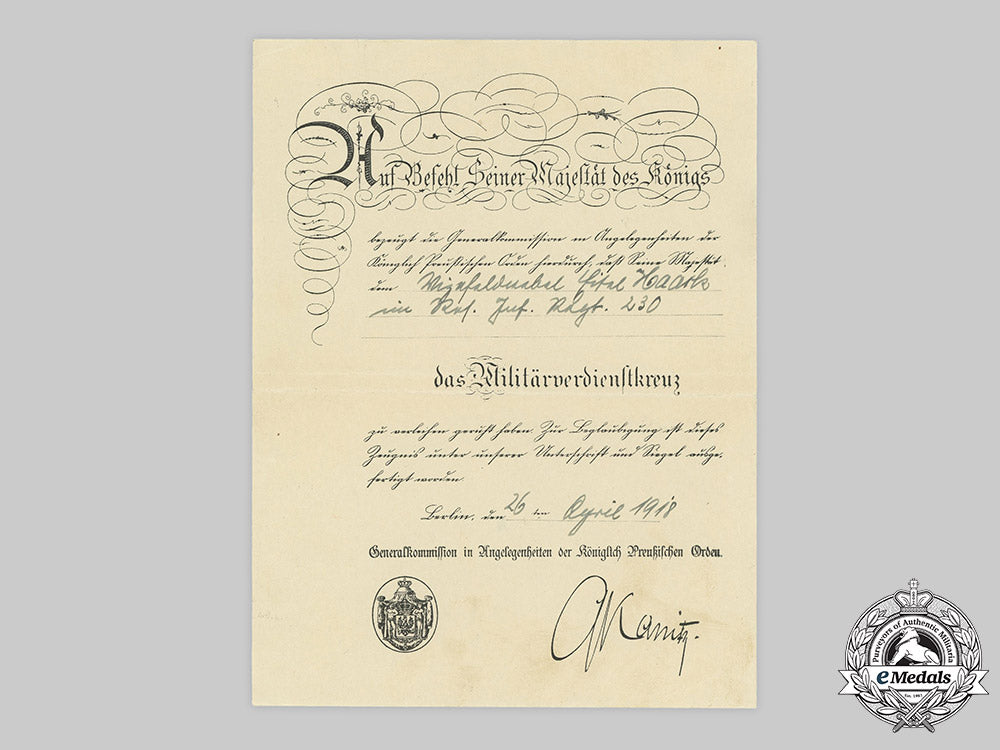 Auf Befehl Seiner Majestät des Königs
bezeugt die Generalkommission in Angelegenheiten der
Königlich Preußischen Orden hierdurch, daß Seine Majestät
dem Vizefeldwebel Eitel Haack
im Res. Inf. Rgt. 230
das Militärverdienstkreuz
zu verleihen geruht haben. Zur Beglaubigung ist dieses
Zeugnis unter unserer Unterschrift und Siegel ausge-
fertigt worden.
Berlin, den 26 ten April 1918
Generalkommission in Angelegenheiten der Königlich Preußischen Orden.
Kanitz.
Purveyors of Authentic Militaria
eMedals